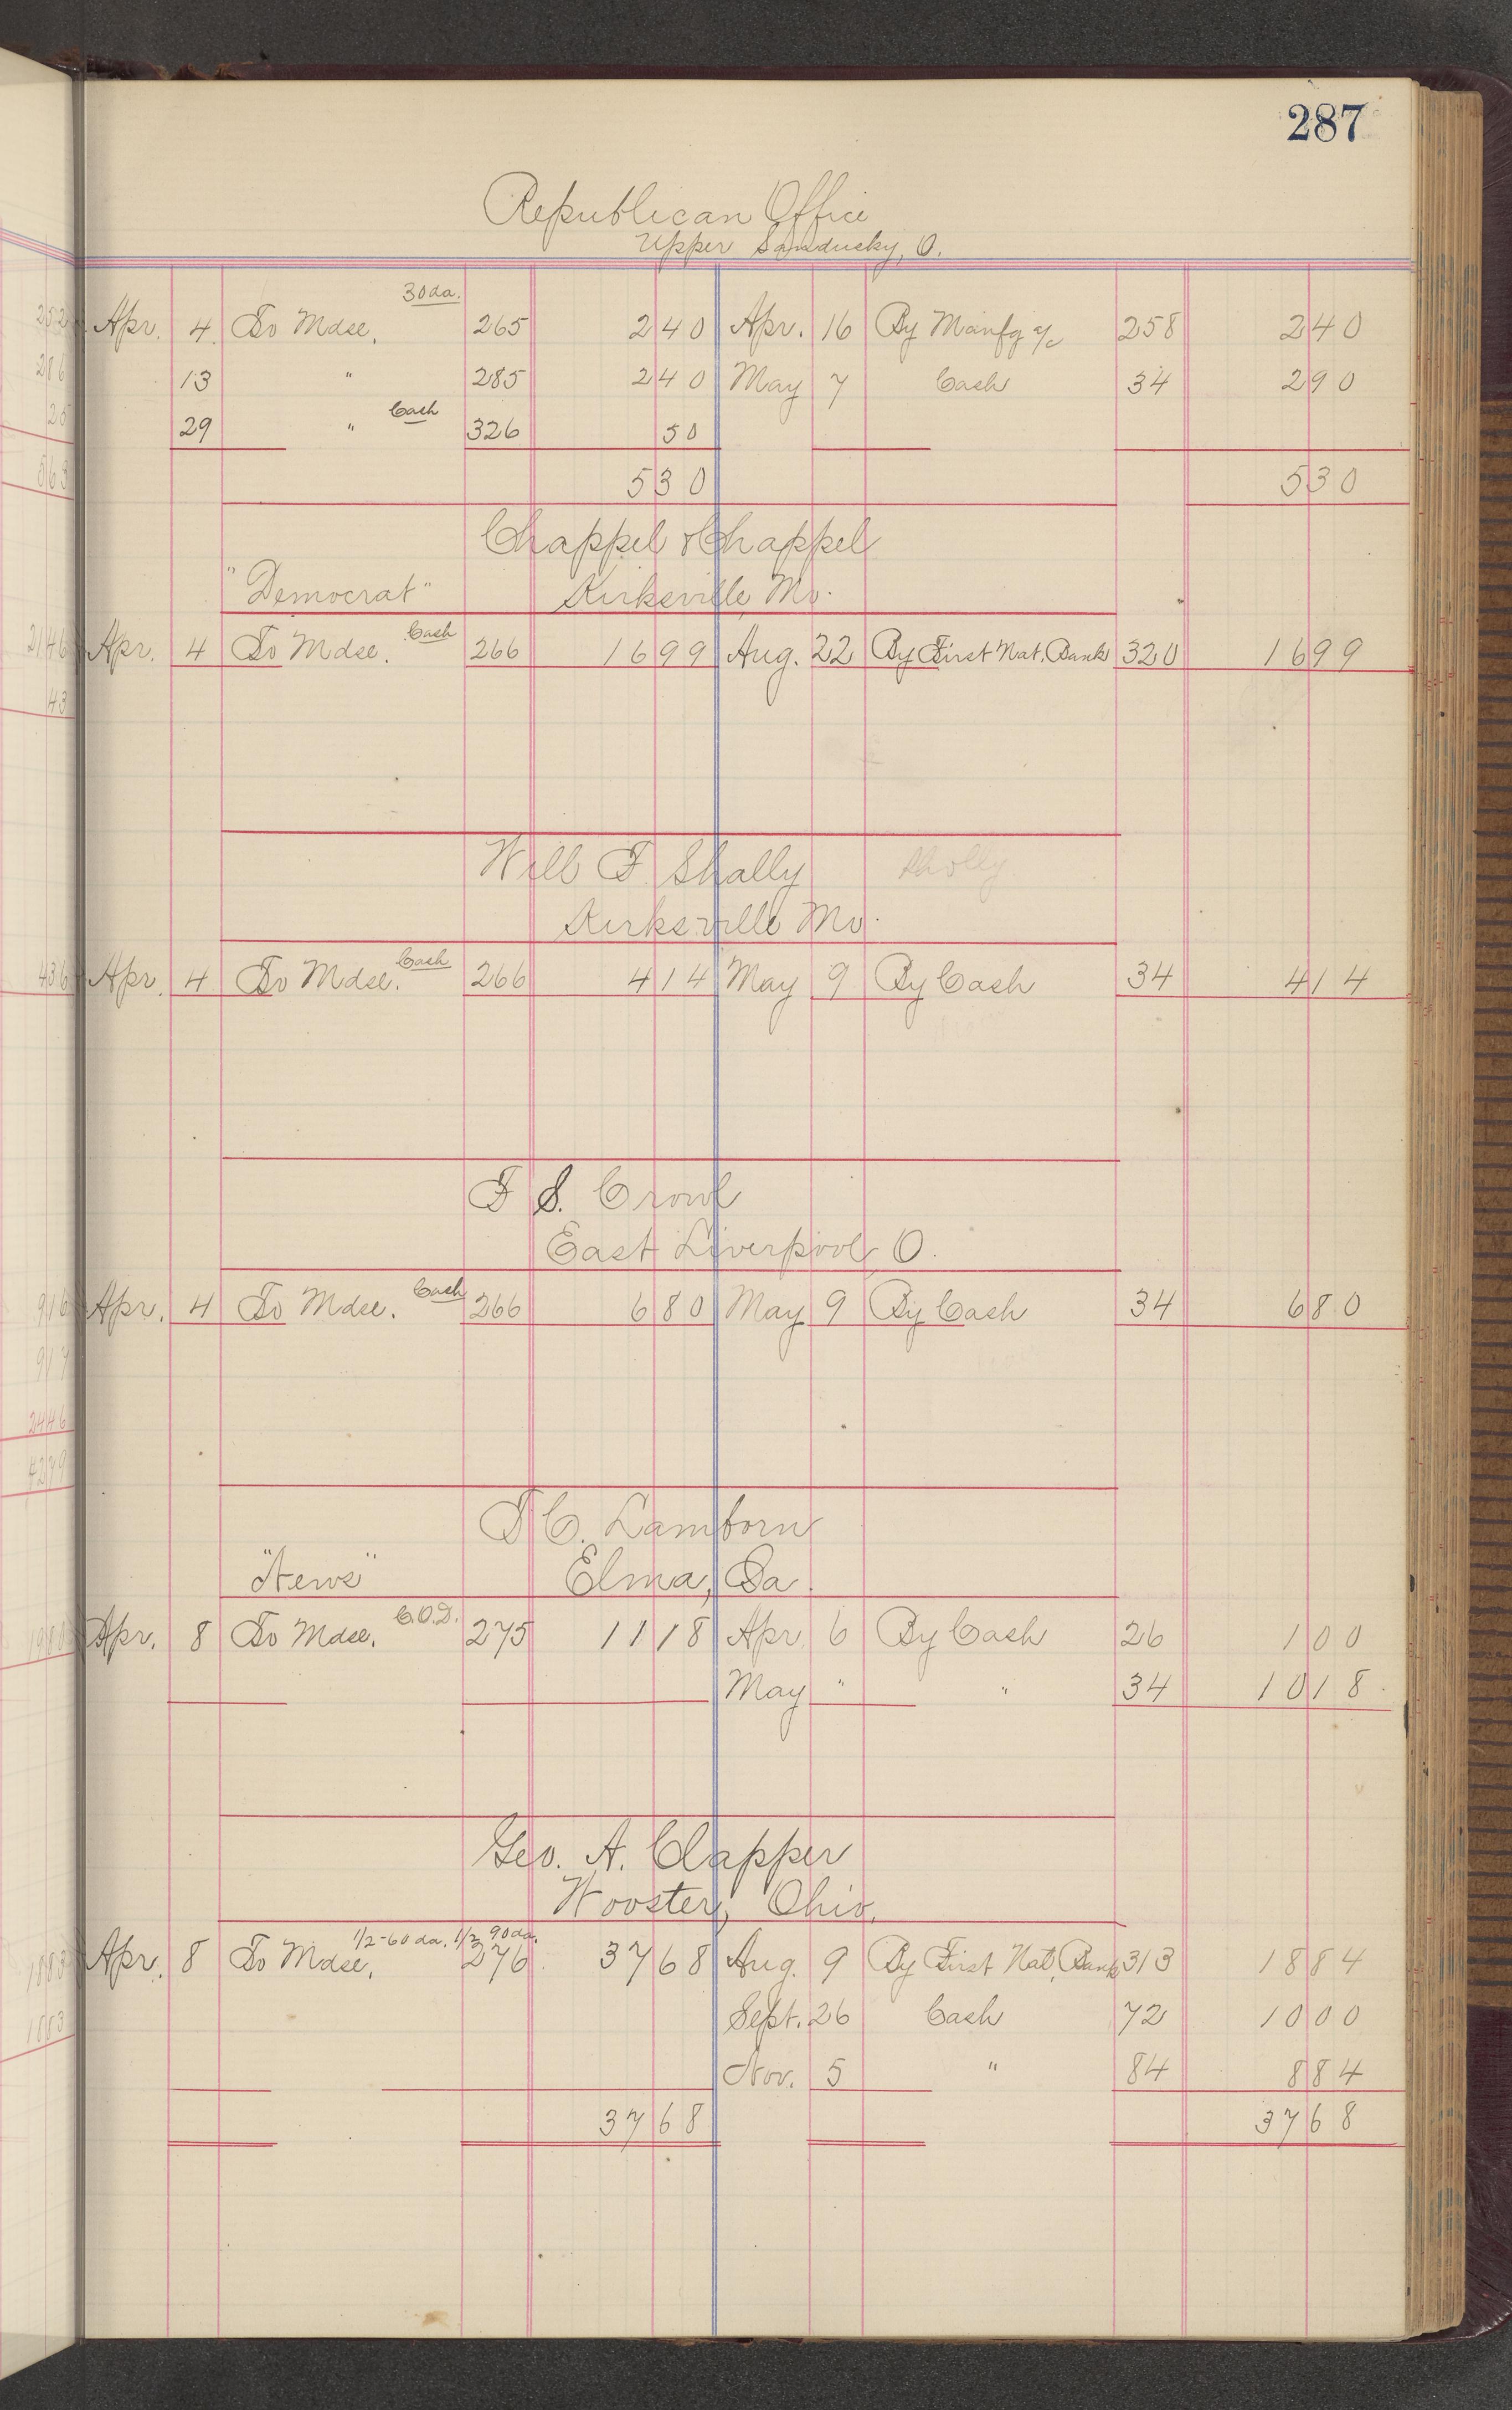 287
Republican Office
Upper Sandusky, O.
Apr. 4 To Mdse. 30 da. 265 2 40 Apr. 16 By Manfg a/c 258 2 40
13 " 285 2 40 May 7 Cash 34 2 90
29 " Cash 326 50
5 30 5 30
Chappel & Chappel
"Democrat" Kirksville, Mo.
Apr. 4 To Mdse. Cash 266 16 99 Aug. 22 By First Nat. Bank 320 16 99
Will F. Shally Sholly
Kirksville Mo.
Apr. 4 To Mdse. Cash 266 4 14 May 9 By Cash 34 4 14
F S. Crowl
East Liverpool, O.
Apr. 4 To Mdse. Cash 266 6 80 May 9 By Cash 34 6 80
T C. Lamborn
"News" Elma, Ia.
Apr. 8 To Mdse. C.O.D. 275 11 18 Apr 6 By Cash 26 1 00
May " " 34 10 18
Geo. A. Clapper
Wooster, Ohio.
Apr. 8 To Mdse. 1/2-60 da. 1/2 90 da. 276 37 68 Aug. 9 By First Nat. Bank 313 18 84
Sept. 26 Cash 72 10 00
Nov. 5 " 84 8 84
37 68 37 68